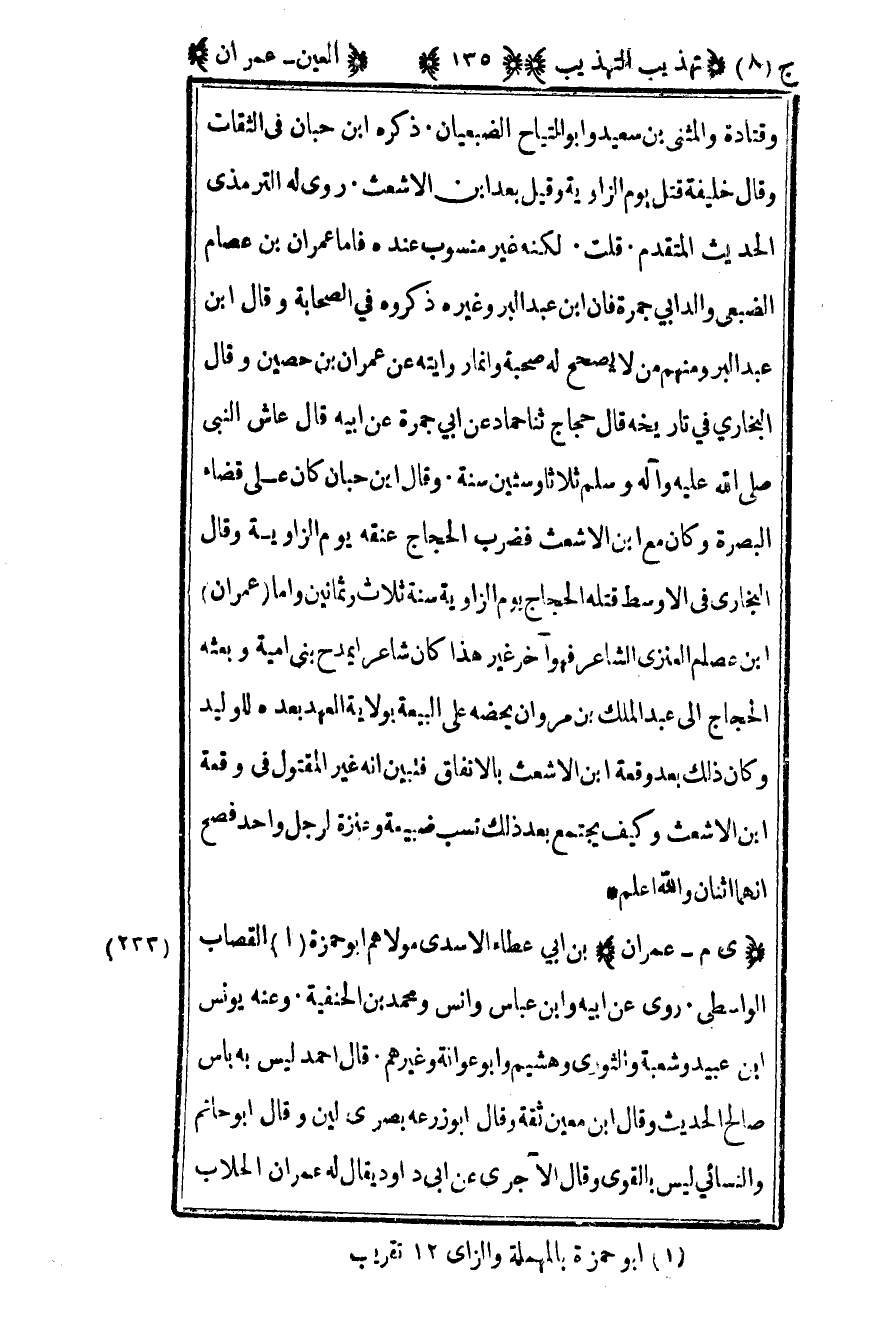 ج (٨) ﴿تهذيب التهذيب﴾ ﴿١٣٥﴾ ﴿العين - عمران﴾
وقتادة والمثنى بن سعيد وابو التياح الضبعيان ٠ ذكره ابن حبان فى الثقات
وقال خليفة قتل يوم الزاوية وقيل بعد ابن الاشعث ٠ روى له الترمذى
الحديث المتقدم ٠ قلت ٠ لكنه غير منسوب عنده فاما عمران بن عصام
الضبعى والد ابي جمرة فان ابن عبد البر وغيره ذكروه في الصحابة وقال ابن
عبد البر ومنهم من لا يصحح له صحبة وانما روايته عن عمران بن حصين وقال
البخاري في تاريخه قال حجاج ثنا حماد عن ابي جمرة عن ابيه قال عاش النبى
صلى الله عليه وآله وسلم ثلاثا وستين سنة ٠ وقال ابن حبان كان على قضاء
البصرة وكان مع ابن الاشعث فضرب الحجاج عنقه يوم الزاوية وقال
البخارى فى الاوسط قتله الحجاج يوم الزاوية سنة ثلاث وثمانين واما (عمران)
ابن عصام العنزى الشاعر فهو آخر غير هذا كان شاعرا يمدح بنى امية وبعثه
الحجاج الى عبد الملك بن مروان يحضه على البيعة بولاية العهد بعده للوليد
وكان ذلك بعد وقعة ابن الاشعث بالاتفاق فتبين انه غير المقتول فى وقعة
ابن الاشعث وكيف يجتمع بعد ذلك نسب ضبيعة وعنزة لرجل واحد فصح
انهما اثنان والله اعلم *
﴿ى م - عمران﴾ بن ابي عطاء الاسدى مولاهم ابو حمزة (١) القصاب (٢٣٣)
الواسطى ٠ روى عن ابيه وابن عباس وانس ومحمد بن الحنفية ٠ وعنه يونس
ابن عبيد وشعبة والثورى وهشيم وابو عوانة وغيرهم ٠ قال احمد ليس به باس
صالح الحديث وقال ابن معين ثقة وقال ابو زرعه بصرى لين وقال ابو حاتم
والنسائي ليس بالقوى وقال الآجرى عن ابى داود يقال له عمران الحلاب
(١) ابو حمزة بالمهملة والزاى ١٢ تقريب